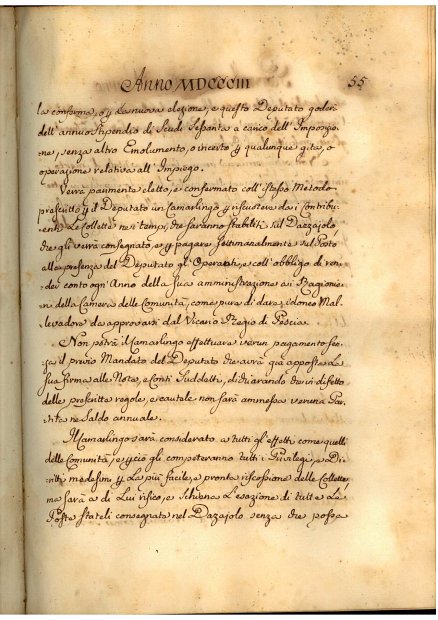 Anno MDCCCIII
55
la conferma, o p la nuova elezione, e questo Deputato goderà
dell'annuo stipendio di Scudi Sessanta a carico dell'Imposizio-
ne, senza altro Emolumento, o incerto p qualunque gita, o
operazione relativa all'Impiego.
Verrà parimente eletto, e confermato coll'istesso Metodo
prescritto p il Deputato un Camarlingo p riscuotere dai Contribu-
enti Le Collette nei tempi, che saranno stabiliti sul Dazzajolo,
che gli verrà consegnato, e p pagare settimanalmente sul Posto
alla presenza del Deputato gl'Operanti, e coll'obbligo di ren-
der conto ogn'Anno della Sua amministrazione ai Ragionie-
ri della Camera delle Comunità, come pure di dare idoneo Mal-
levadore da approvarsi dal Vicario Regio di Pescia.
Non potrà il Camarlingo effettuare verun pagamento sen-
za il previo Mandato del Deputato che avrà già apposta La
Sua firma alle Note, e Conti Suddetti, dichiarando che in difetto
delle prescritte regole, e cautele non sarà ammessa veruna Par-
tita nel Saldo annuale.
Il Camarlingo sarà considerato a tutti gl'effetti come quelli
delle Comunità, e p ciò gli competeranno tutti i Privilegi, e Di-
ritti medesimi p La più facile, e pronta riscossione delle Collette,
ma sarà a di Lui risico, e Schiena L'esazione di tutte Le
Poste Stateli consegnate nel Dazajolo senza che possa